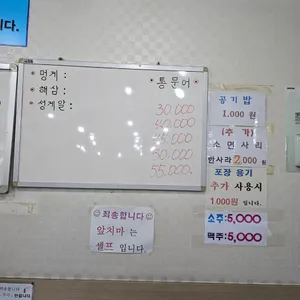 니다.
* 멍게 :
* 해삼 :
* 성게알 :
* 통문어 *
30,000
40,000
50,000
55,000
공기밥
1,000원
(추가)
소면사리
한사라 2,000원
포장 용기
추가 사용시
1,000원 입니다.
소주:5,000
맥주:5,000
☺죄송합니다☺
앞치마는
셀프 입니다
죄송합니다